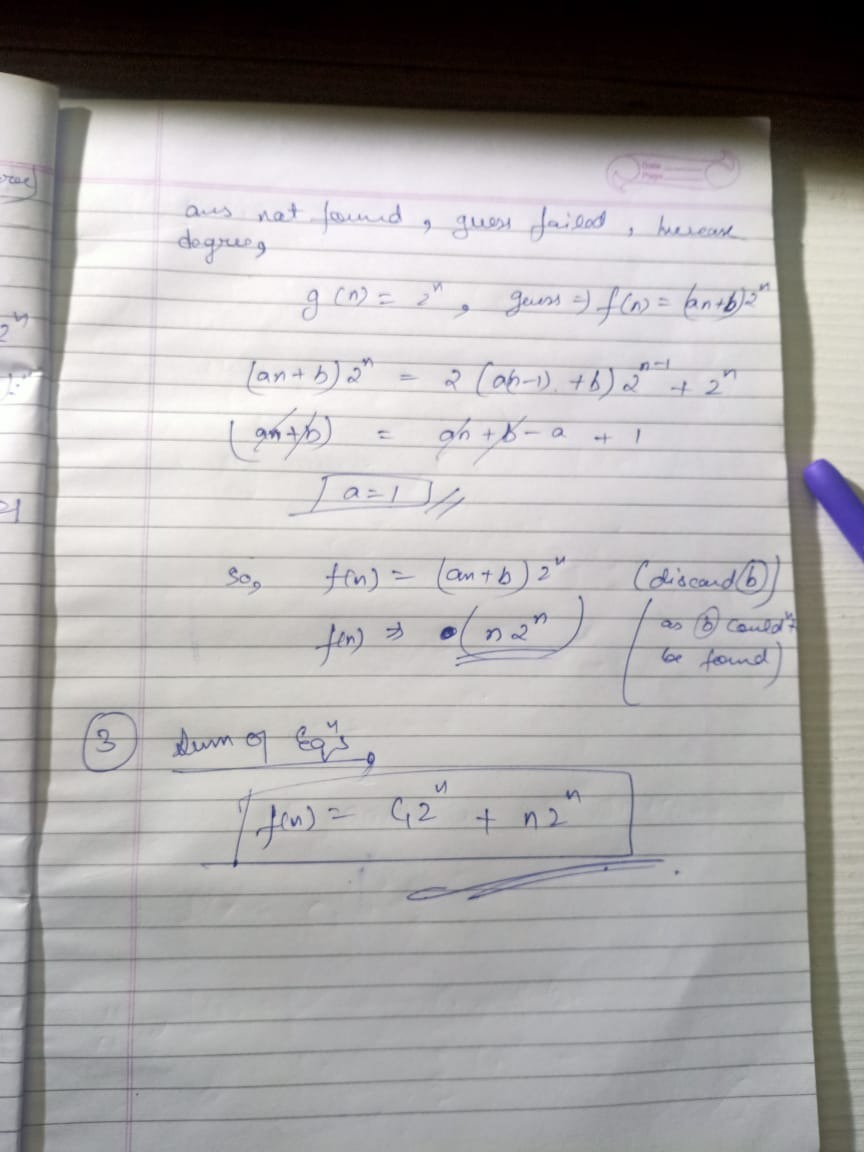 ans not found, guess failed, increase
degree,
g(n) = 2ⁿ, guess ⇒ f(n) = (an+b)2ⁿ
(an+b)2ⁿ = 2(a(n-1)+b)2ⁿ⁻¹ + 2ⁿ
(an+b) = an+b-a+1
a=1
So, f(n) = (an+b)2ⁿ (discard b)
f(n) ⇒ (n2ⁿ) (as b couldn't
be found)
3 Sum of Eqⁿs,
f(n) = C₁2ⁿ + n2ⁿ